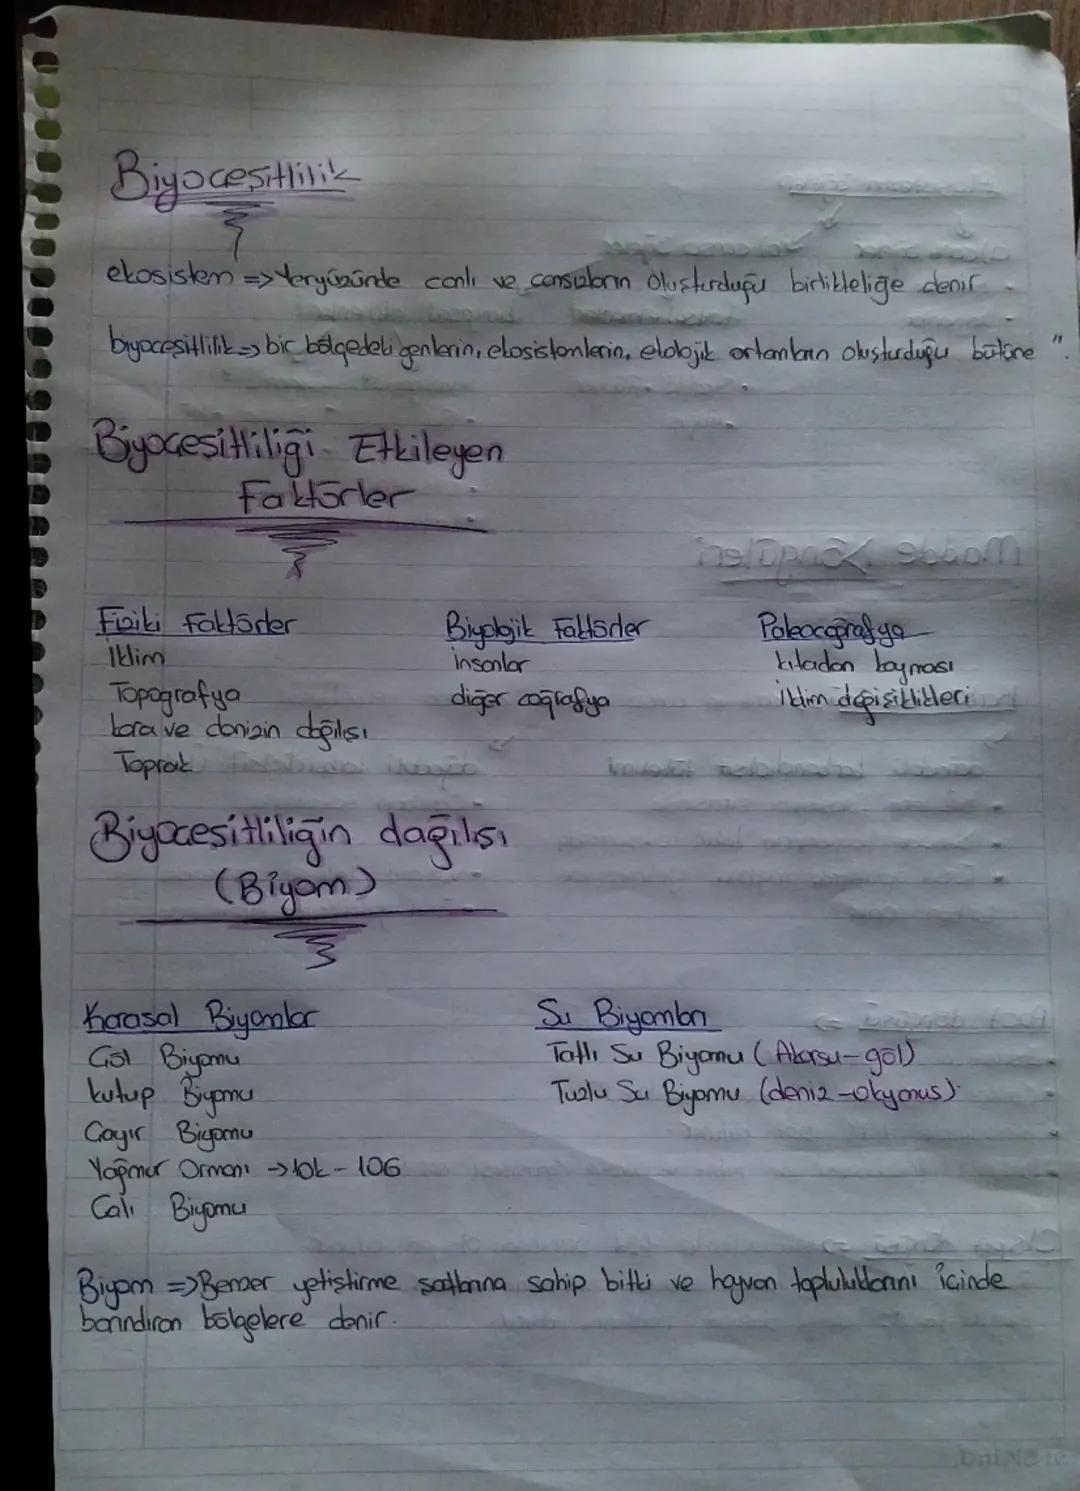 Biyoceşitlilik
ekosistem => Yeryüzünde canlı ve cansızların oluşturduğu birlikteliğe denir.
biyoceşitlilik => bir bölgedeki genlerin, ekosistemlerin, ekolojik ortamların oluşturduğu bütüne ".
Biyoceşitliliği Etkileyen
Faktörler
Fiziki Faktörler
İklim
Topografya
kara ve denizin dağılışı
Toprak
Biyolojik Faktörler
insanlar
diğer coğrafya
Paleocoğrafya
kıtadan kayması
iklim değişiklikleri
Biyoceşitliliğin dağılışı
(Biyom)
Karasal Biyomlar
Çöl Biyomu
kutup Biyomu
Çayır Biyomu
Yağmur Ormanı → 10K - 10G
Çalı Biyomu
Su Biyomları
Tatlı Su Biyomu (Akarsu-göl)
Tuzlu Su Biyomu (deniz-okyonus)
Biyom => Benzer yetiştirme şartlarına sahip bitki ve hayvan topluluklarını içinde
barındıran bölgelere denir.
Madde Döngüleri